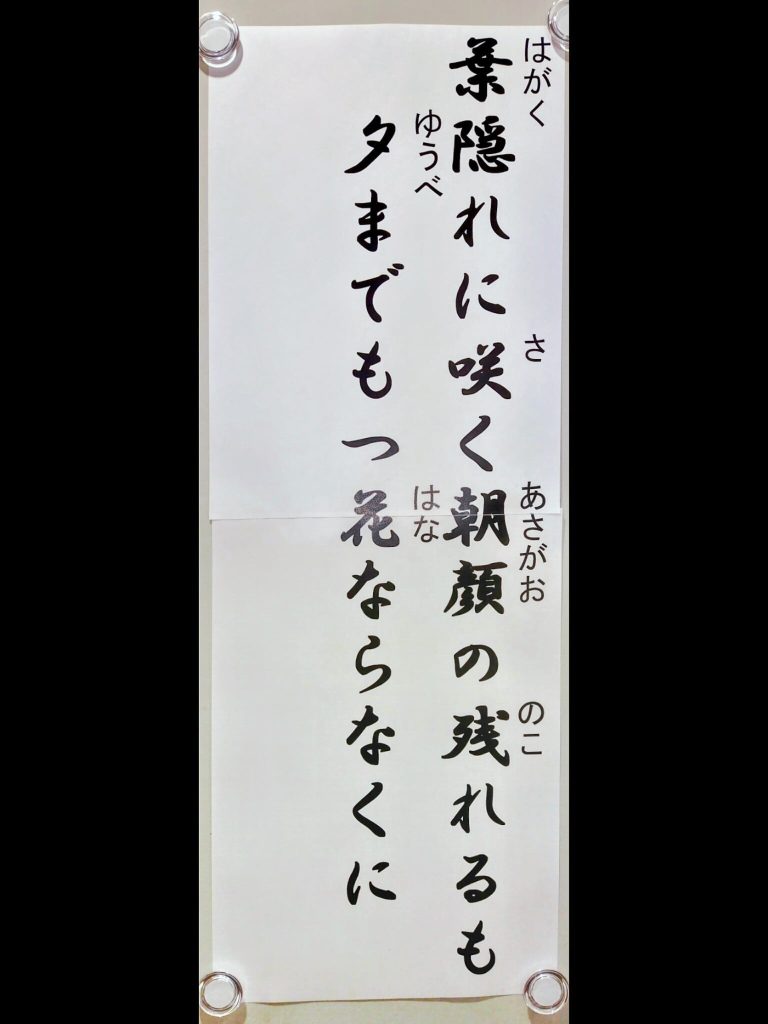 葉隠れに咲く朝顔の残れるも
はがく
さ
あさがお
のこ
夕までもつ花ならなくに
ゆうべ
はな